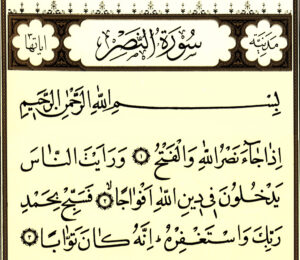 مدنية سورة النصر آياتها ٣
بِسْمِ اللهِ الرَّحْمٰنِ الرَّحِيمِ
اِذَا جَآءَ نَصْرُ اللهِ وَالْفَتْحُ ۝١ وَرَاَيْتَ النَّاسَ
يَدْخُلُونَ فِي دِينِ اللهِ اَفْوَاجًا ۝٢ فَسَبِّحْ بِحَمْدِ
رَبِّكَ وَاسْتَغْفِرْهُ اِنَّهُ كَانَ تَوَّابًا ۝٣